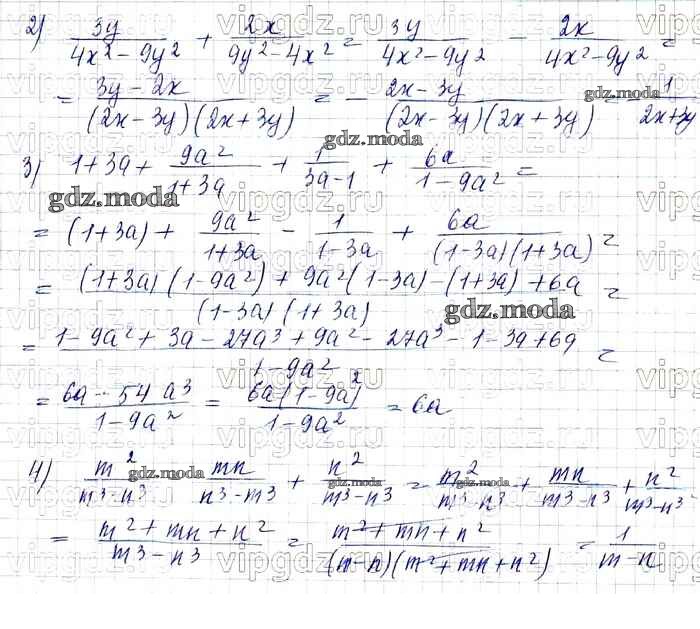 2) 3y/(4x² - 9y²) + 2x/(9y² - 4x²) = 3y/(4x² - 9y²) - 2x/(4x² - 9y²) =
= (3y - 2x)/((2x - 3y)(2x + 3y)) = - (2x - 3y)/((2x - 3y)(2x + 3y)) 1/(2x+3y)
3) 1 + 3a + 9a²/(1+3a) + 1/(3a-1) + 6a/(1-9a²) =
= (1+3a) + 9a²/(1+3a) - 1/(1-3a) + 6a/((1-3a)(1+3a)) =
= ((1+3a)(1-9a²) + 9a²(1-3a) - (1+3a) + 6a)/((1-3a)(1+3a)) =
= (1 - 9a² + 3a - 27a³ + 9a² - 27a³ - 1 - 3a + 6a)/(1-9a²) =
= (6a - 54a³)/(1-9a²) = 6a(1-9a)²/(1-9a²) = 6a
4) m²/(m³-n³) mn/(n³-m³) + n²/(m³-n³) = m²/(m³-n³) + mn/(m³-n³) + n²/(m³-n³)
= (m² + mn + n²)/(m³ - n³) = (m² + mn + n²)/((m-n)(m² + mn + n²)) = 1/(m-n)
gdz.moda
vipgdz.ru